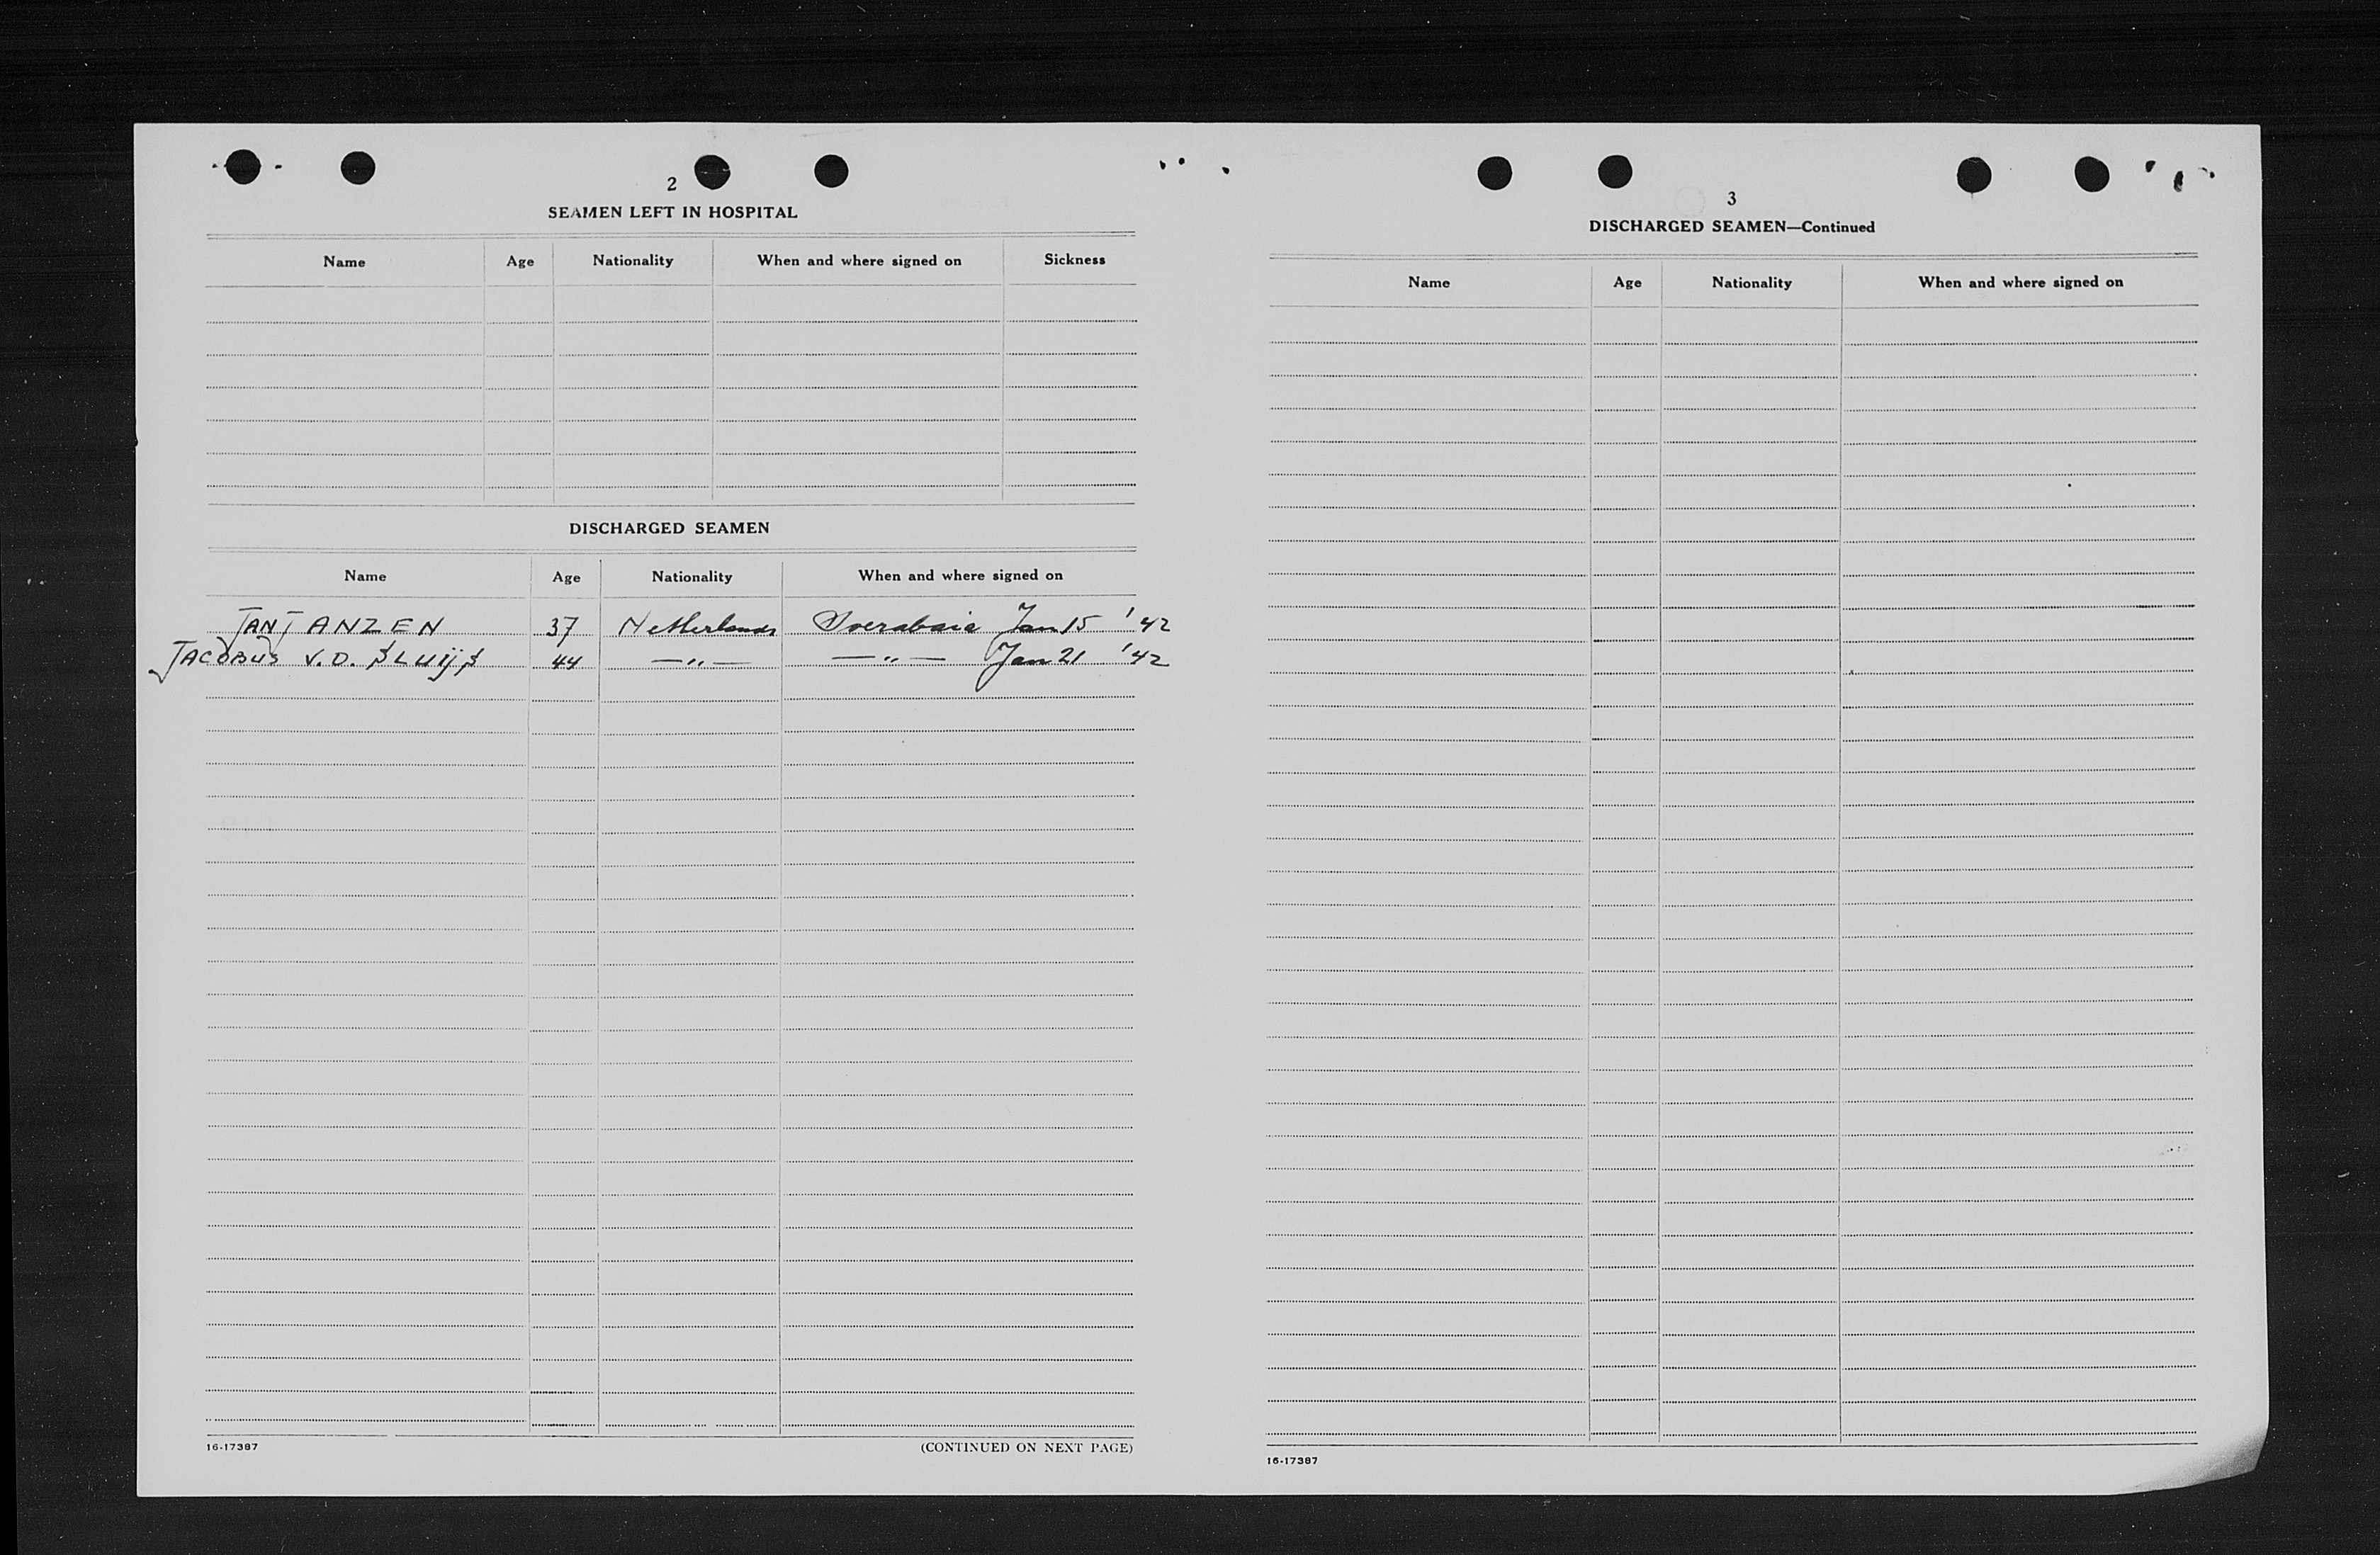 2
SEAMEN LEFT IN HOSPITAL
Name Age Nationality When and where signed on Sickness
DISCHARGED SEAMEN
Name Age Nationality When and where signed on
JAN JANZEN 37 Netherlands Soerabaia Jan 15 '42
JACOBUS V.D. SLUijS 44 —"— —"— Jan 21 '42
16-17387 (CONTINUED ON NEXT PAGE)
3
DISCHARGED SEAMEN—Continued
Name Age Nationality When and where signed on
16-17387